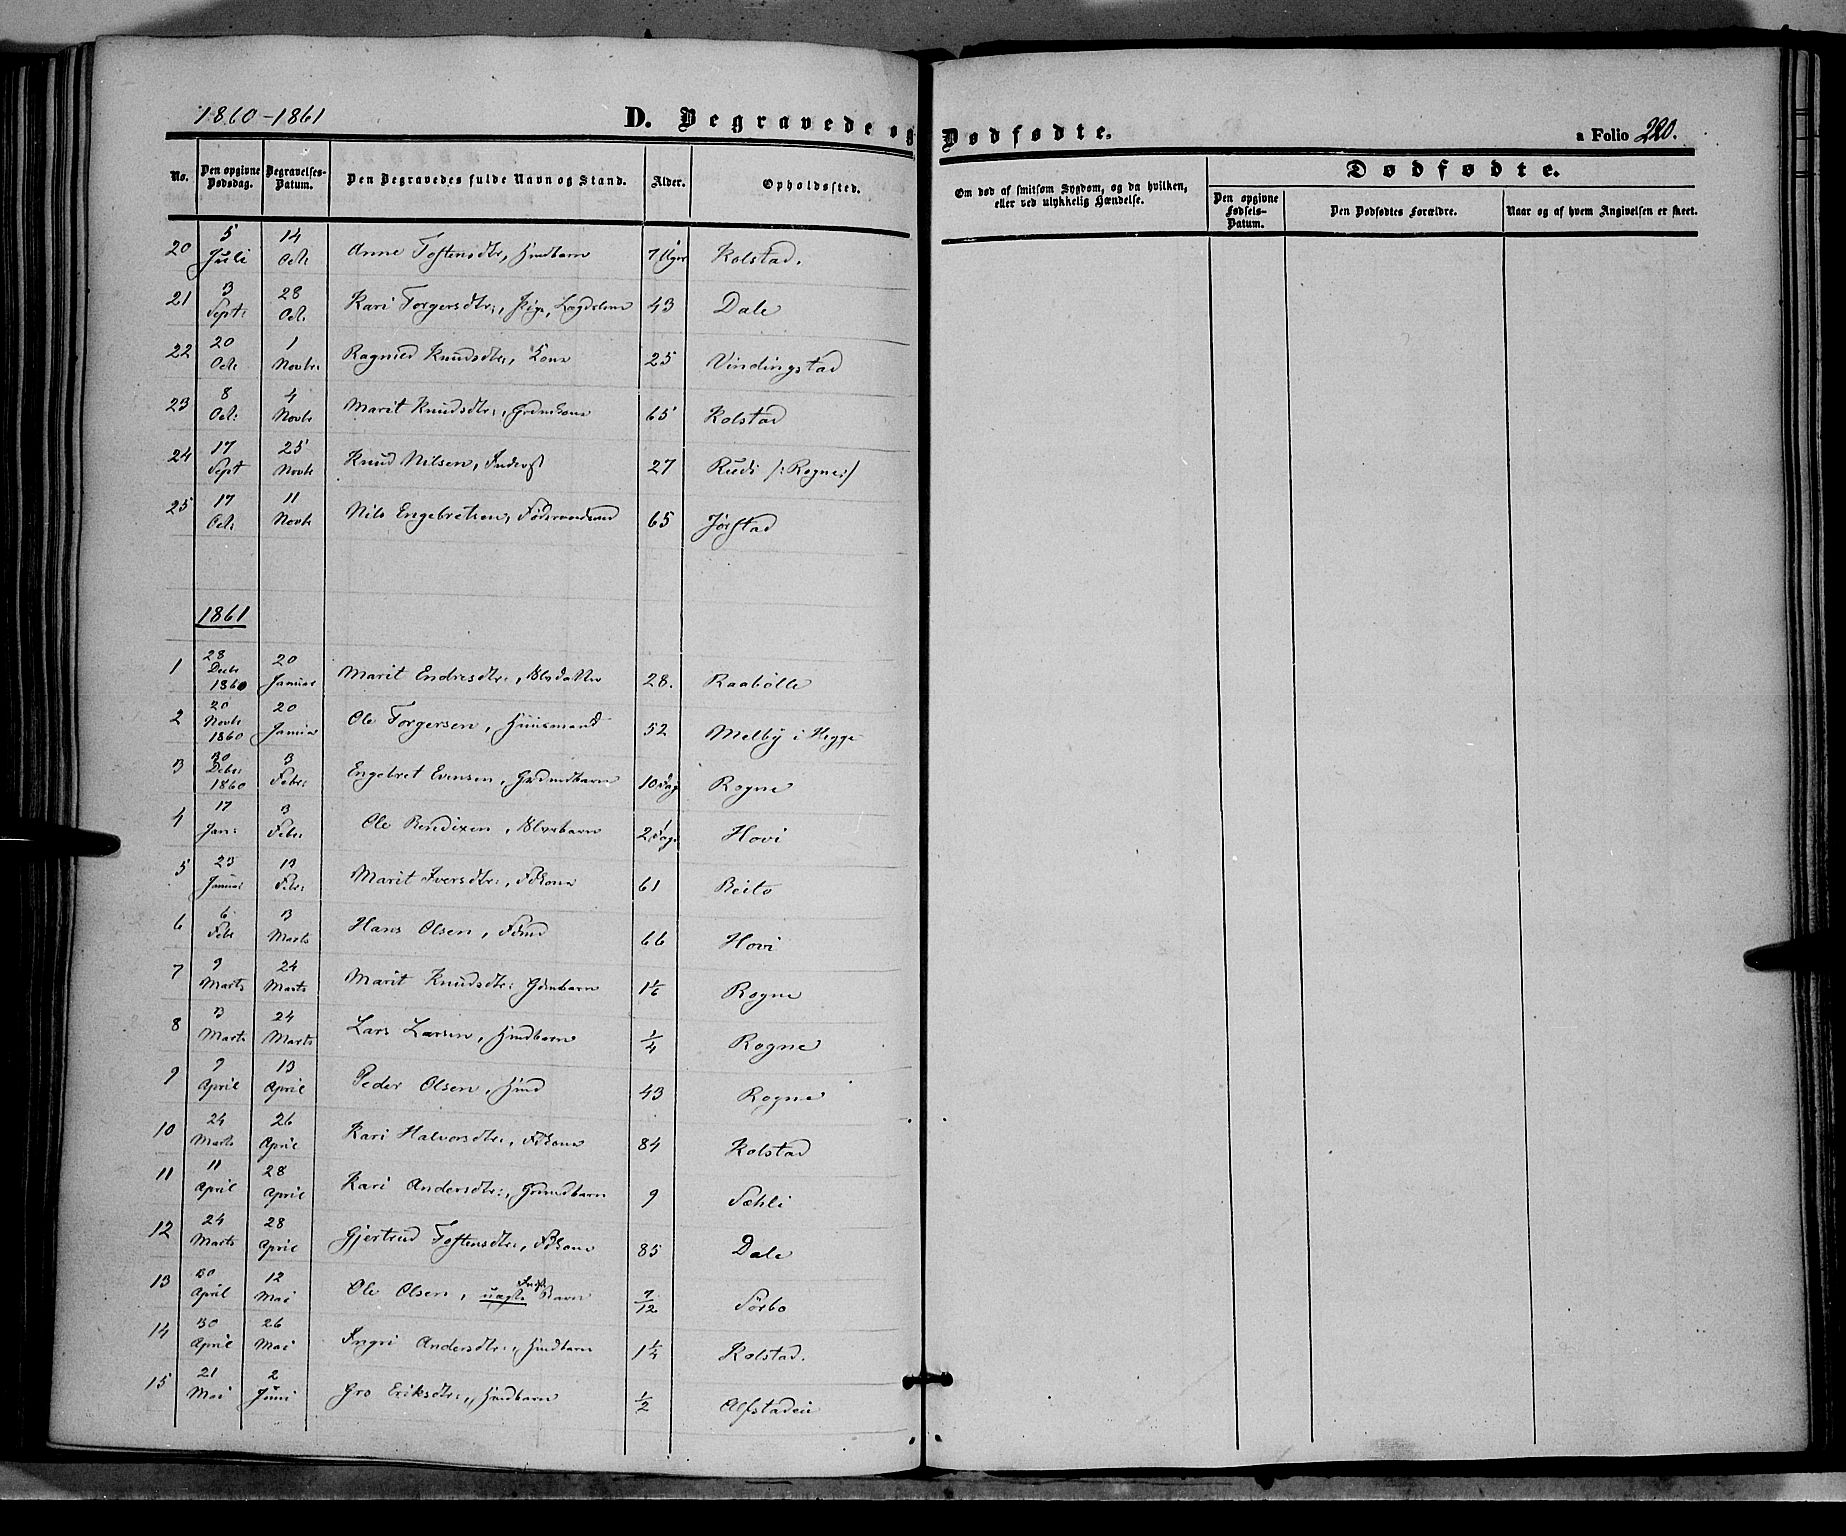 1860-1861
D. Begravede og Dødfødte.
a Folio 220.
No.
Den opgivne Dødsdag.
Begravelses-Datum.
Den Begravedes fulde Navn og Stand.
Alder.
Opholdssted.
Om død af smitsom Sygdom, og da hvilken, eller ved ulykkelig Hændelse.
Dødfødte.
Den opgivne Fødsels-Datum.
Den Dødfødtes Forældre.
Naar og af hvem Angivelsen er skeet.
20 5 Juli 14 Oct Anne Tostensdtr, Hmdbarn 7 Kolstad.
21 3 Sept: 28 Oct. Kari Torgersdtr:, Pige, 43 Dale
22 20 Oct. 1 Novbr: Ragnild Knudsdtr:, Kone 25 Vindingstad
23 8 Oct: 4 Novbr Marit Knudsdtr:, 65 Kolstad
24 17 Sept 25 Novbr Knud Nilsen, Inderst 27 Rudi /:Rogne:/
25 17 Oct: 11 Novbr Nils Engebretsen, Føderaadsmd 65 Jørstad
1861
1 28 Decbr 1860 20 Januar Marit Endresdtr:, 28. Raabølle
2 20 Novbr 1860 20 Januar Ole Torgersen, Huusmand 52 Melby i Hegge
3 30 Decbr 1860 3 Febr: Engebret Evensen, Grdmdbarn 10 Dag Rogne
4 17 Jan: 3 Febr Ole Bendixen, 2 Dage Hovi
5 23 Januar 13 Febr: Marit Iversdtr:, Fdkone 61 Beito
6 6 Febr 3 Marts Hans Olsen, Fdmd 66 Hovi
7 9 Marts 24 Marts Marit Knudsdtr: Gdmbarn 1 1/6 Rogne
8 3 Marts 24 Marts Lars Larsen, Hmdbarn 1/4 Rogne
9 9 April 13 April Peder Olsen, Hmd 43 Rogne
10 24 Marts 26 April Kari Halvorsdtr:, Fdkone 84 Kolstad
11 11 April 28 April Kari Andersdtr:, Grdmdbarn 9 Sæhli
12 24 Marts 28 April Gjertrud Tostensdtr:, Fdkone 85 Dale
13 30 April 12 Mai Ole Olsen, uægte Barn 7/12 Sørbo
14 30 April 26 Mai Ingri Andersdtr:, Hmdbarn 1 1/4 Kolstad.
15 21 Mai 2 Juni Gro Eriksdtr:, Hmdbarn 1/2 Alfstadeie